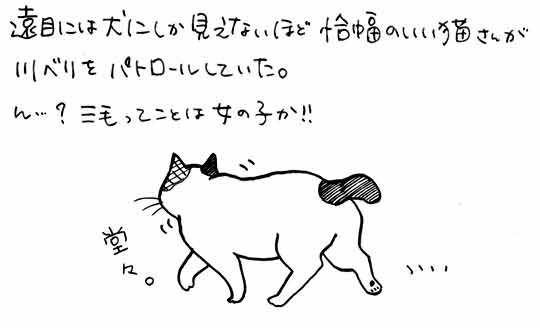 遠目には犬にしか見えないほど恰幅のいい猫さんが
川べりをパトロールしていた。
ん…？三毛ってことは女の子か!!
堂々。